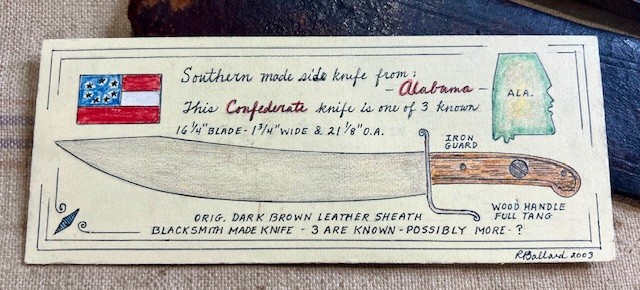 Southern made side knife from:
- Alabama -
This Confederate knife is one of 3 known
16 1/4" BLADE - 1 3/4" WIDE & 21 1/8" O.A.
ALA.
IRON
GUARD
WOOD HANDLE
FULL TANG
ORIG. DARK BROWN LEATHER SHEATH
BLACKSMITH MADE KNIFE - 3 ARE KNOWN - POSSIBLY MORE - ?
RBallard 2003